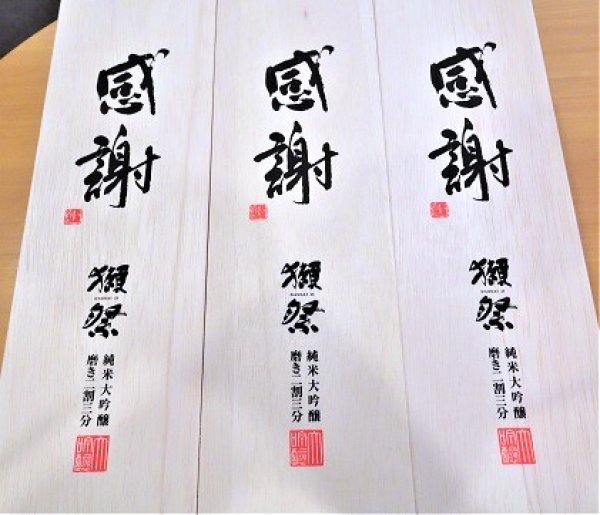 感謝
獺祭
純米大吟醸
磨き二割三分
感謝
獺祭
純米大吟醸
磨き二割三分
感謝
獺祭
純米大吟醸
磨き二割三分